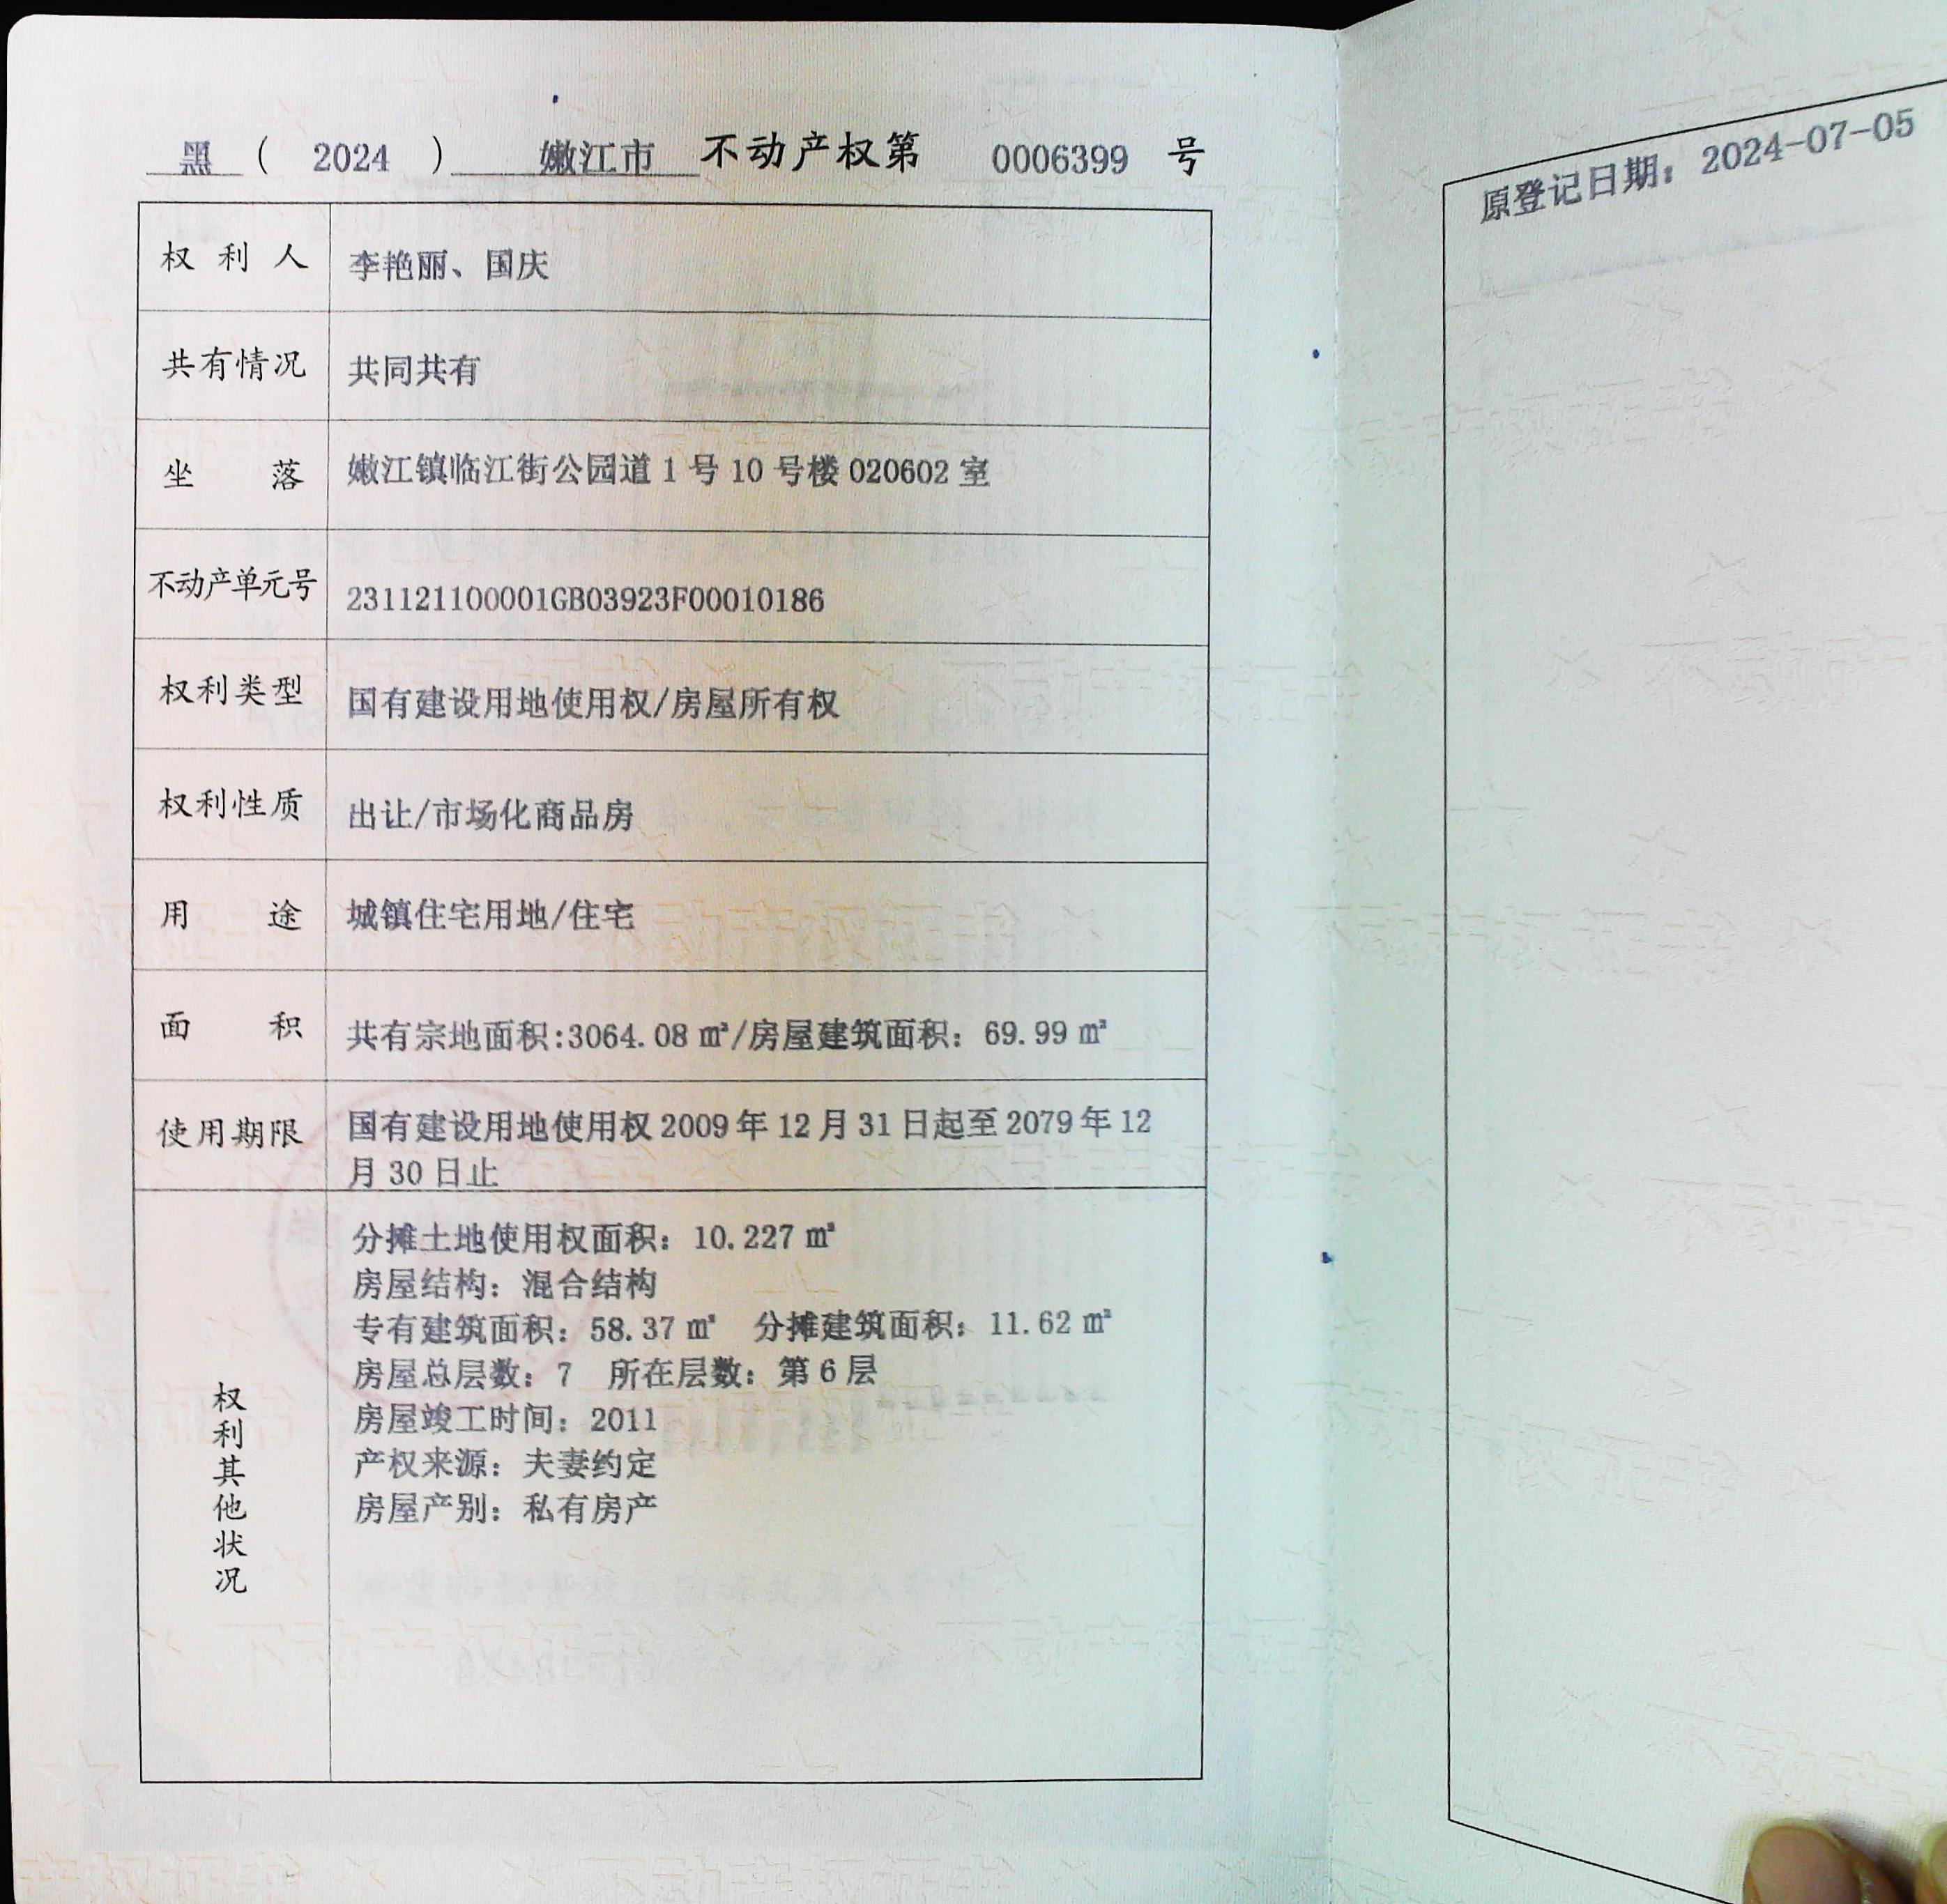 黑 ( 2024 ) 嫩江市 不动产权第 0006399 号
权利人 李艳丽、国庆
共有情况 共同共有
坐落 嫩江镇临江街公园道1号10号楼020602室
不动产单元号 231121100001GB03923F00010186
权利类型 国有建设用地使用权/房屋所有权
权利性质 出让/市场化商品房
用途 城镇住宅用地/住宅
面积 共有宗地面积:3064.08㎡/房屋建筑面积：69.99㎡
使用期限 国有建设用地使用权2009年12月31日起至2079年12
月30日止
权利其他状况
分摊土地使用权面积：10.227㎡
房屋结构：混合结构
专有建筑面积：58.37㎡ 分摊建筑面积：11.62㎡
房屋总层数：7 所在层数：第6层
房屋竣工时间：2011
产权来源：夫妻约定
房屋产别：私有房产
原登记日期：2024-07-05